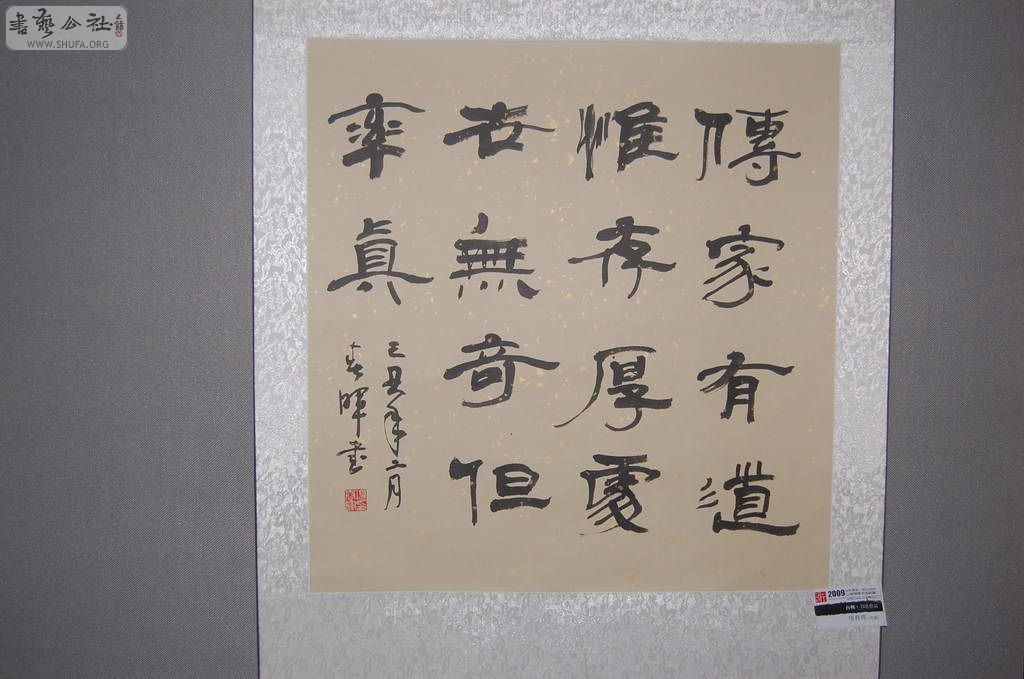 書藝公社
WWW.SHUFA.ORG
傳家有道
惟存厚處
世無奇但
率真
己丑年二月
春暉書
2009